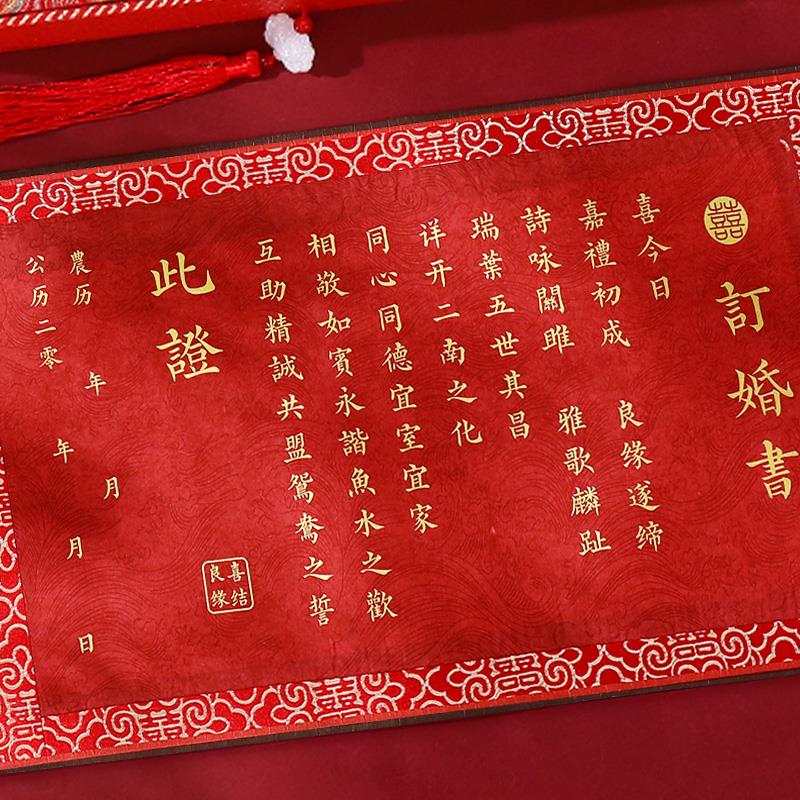 囍
訂婚書
喜今日
嘉禮初成 良缘遂缔
詩咏關雎 雅歌麟趾
瑞葉五世其昌
详开二南之化
同心同德宜室宜家
相敬如賓永諧魚水之歡
互助精誠共盟鴛鴦之誓
此證
喜结
良缘
農历 年 月
公历二零 年 月 日